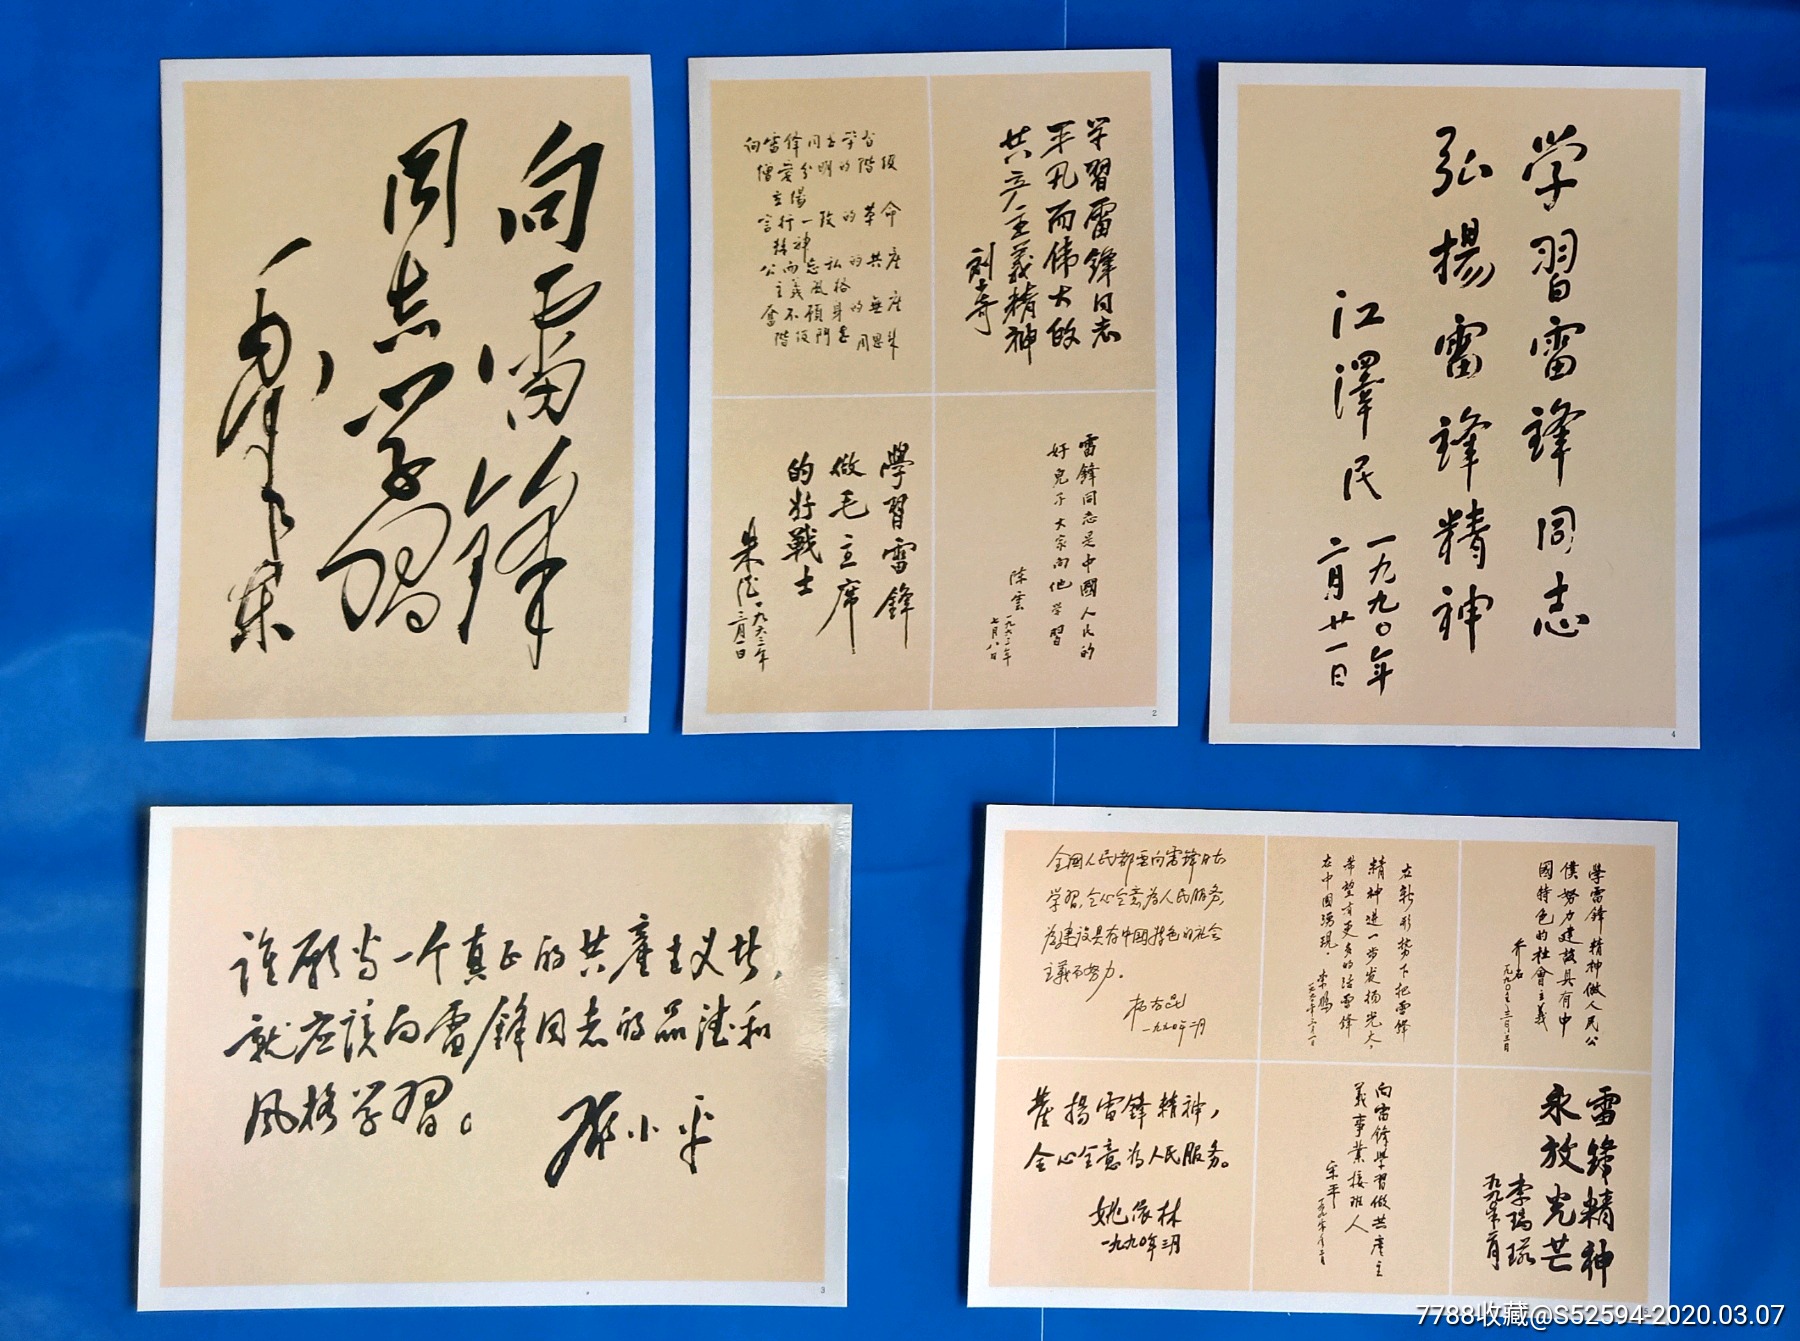 向雷锋
同志学习
毛泽东
1
学習雷鋒同志
平凡而伟大的
共产主義精神
刘少奇
向雷锋同志学習
憎爱分明的階级
立场
言行一致的革命
精神
公而忘私的共產
主義風格
奮不顧身的無產
階级鬥志
周恩来
雷鋒同志是中國人民的
好兒子大家向他学習
陈雲
一九六三年
七月八日
學習雷鋒
做毛主席
的好戰士
朱德
一九六三年
二月一日
2
学習雷鋒同志
弘揚雷鋒精神
江澤民
一九九〇年
二月廿一日
4
谁願当一个真正的共產主义者,
就应该向雷鋒同志的品德和
风格学習。
邓小平
3
全国人民都要向雷锋同志
学習,全心全意为人民服务,
为建设具有中國特色的社会
主義而努力.
杨尚昆
一九九〇年二月
在新形势下把雷锋
精神进一步发扬光大,
希望有更多的活雷锋
在中国涌现.
李鹏
學雷鋒精神做人民公
僕努力建設具有中
國特色的社會主義
乔石
一九九〇年三月三日
發揚雷鋒精神,
全心全意为人民服务。
姚依林
一九九〇年三月
向雷鋒學習做共產主
義事業接班人
宋平
雷鋒精神
永放光芒
李瑞环
7788收藏@S52594-2020.03.07